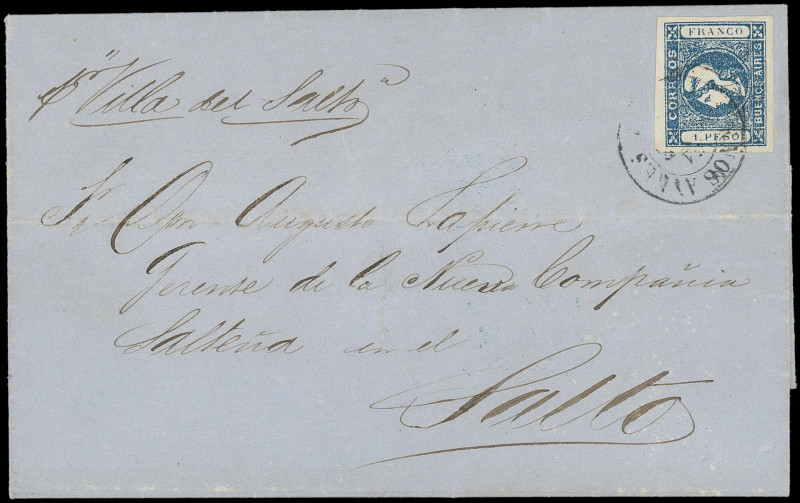 FRANCO
CORREOS
BUENOS AIRES
1. PESO
pr "Villa del Salto"
Sr Don Augusto Lapierre
Gerente de la Nueva Compañia
Salteña en el
Salto